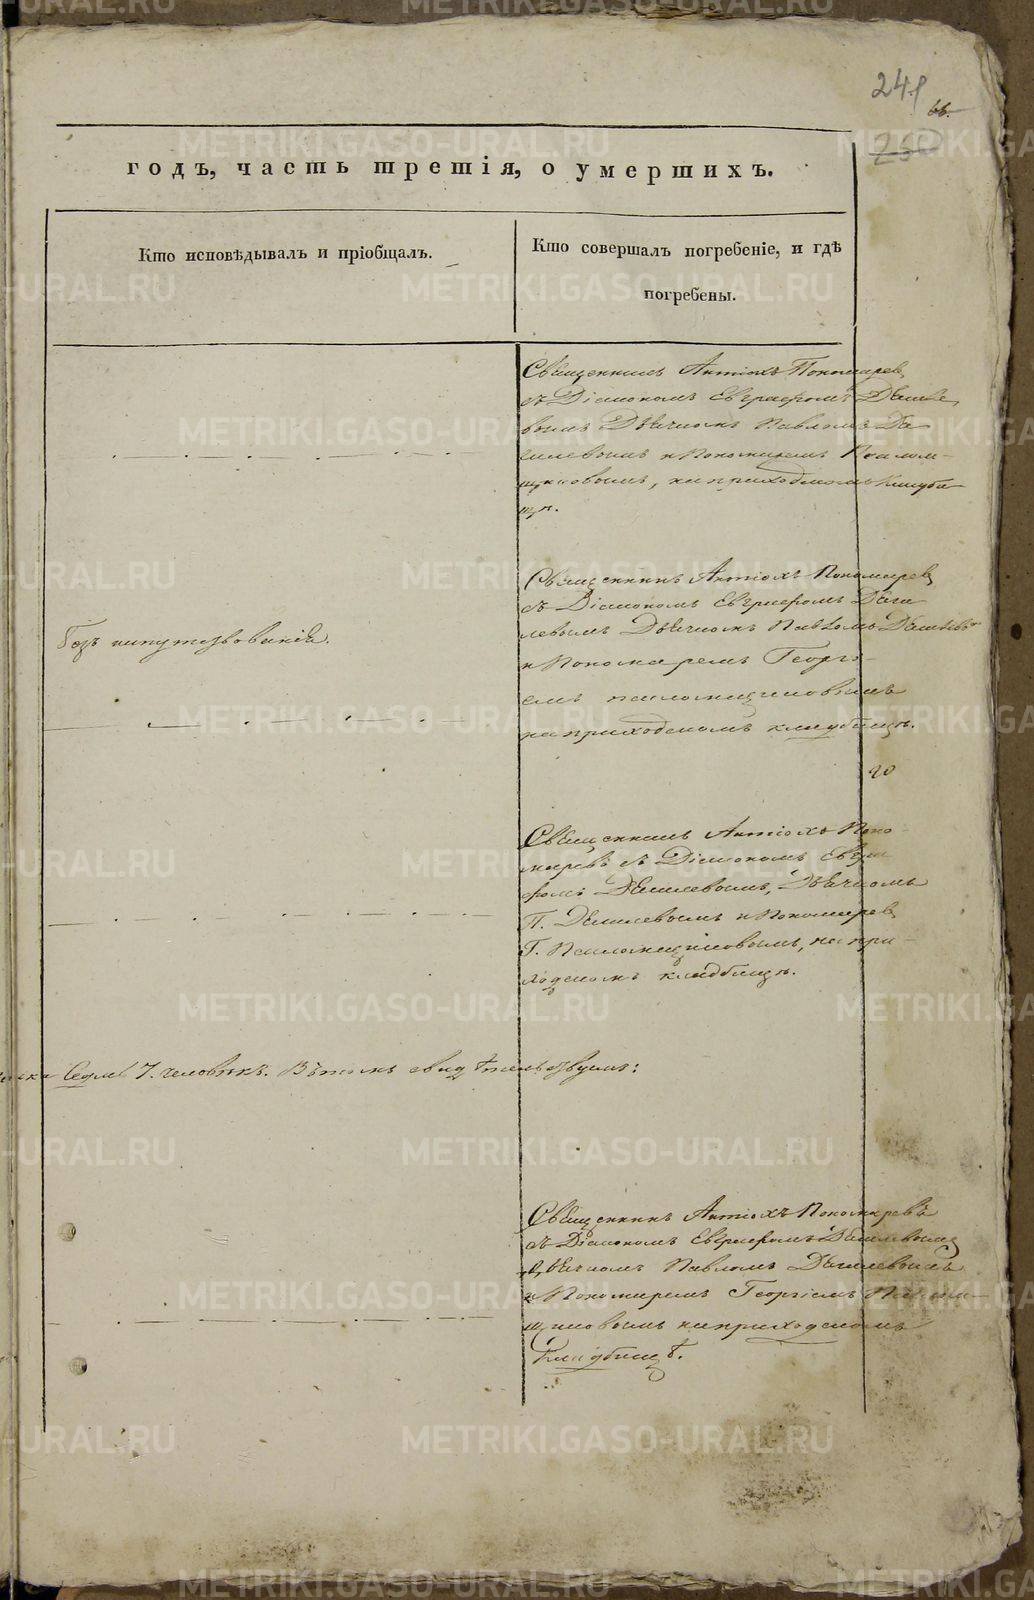 241
66.
250
годъ, часть третія, о умершихъ.
Кто исповѣдывалъ и пріобщалъ.
Кто совершалъ погребеніе, и гдѣ
погребены.
Священникъ Антіохъ Пономарев
съ Діакономъ Евграфомъ
Дьячком Павломъ Да
и Пономаремъ Псалом-
щиковымъ, на приходскомъ кладби
щѣ.
Безъ напутствованія.
Священникъ Антіохъ Пономарев
съ Діакономъ Евграфомъ Дани
левымъ Дьячкомъ Павломъ
и Пономаремъ Георгі-
емъ псаломщиковымъ
на приходскомъ кладбищѣ.
Священникъ Антіохъ Поно-
маревъ съ Діакономъ Евгра
фомъ Данилевымъ, Дьячкомъ
П. Данилевымъ и Пономарев
Г. Псаломщиковымъ, на при-
ходскомъ кладбищѣ.
Седмь 7. человѣкъ. Въ томъ свидѣтельствуемъ:
Священникъ Антіохъ Пономаревъ
съ Діакономъ Евграфомъ Данилевымъ
Дьячкомъ Павломъ Данилевымъ
и Пономаремъ Георгіемъ Псалом-
щиковымъ на приходскомъ
кладбищѣ.
METRIKI.GASO-URAL.RU